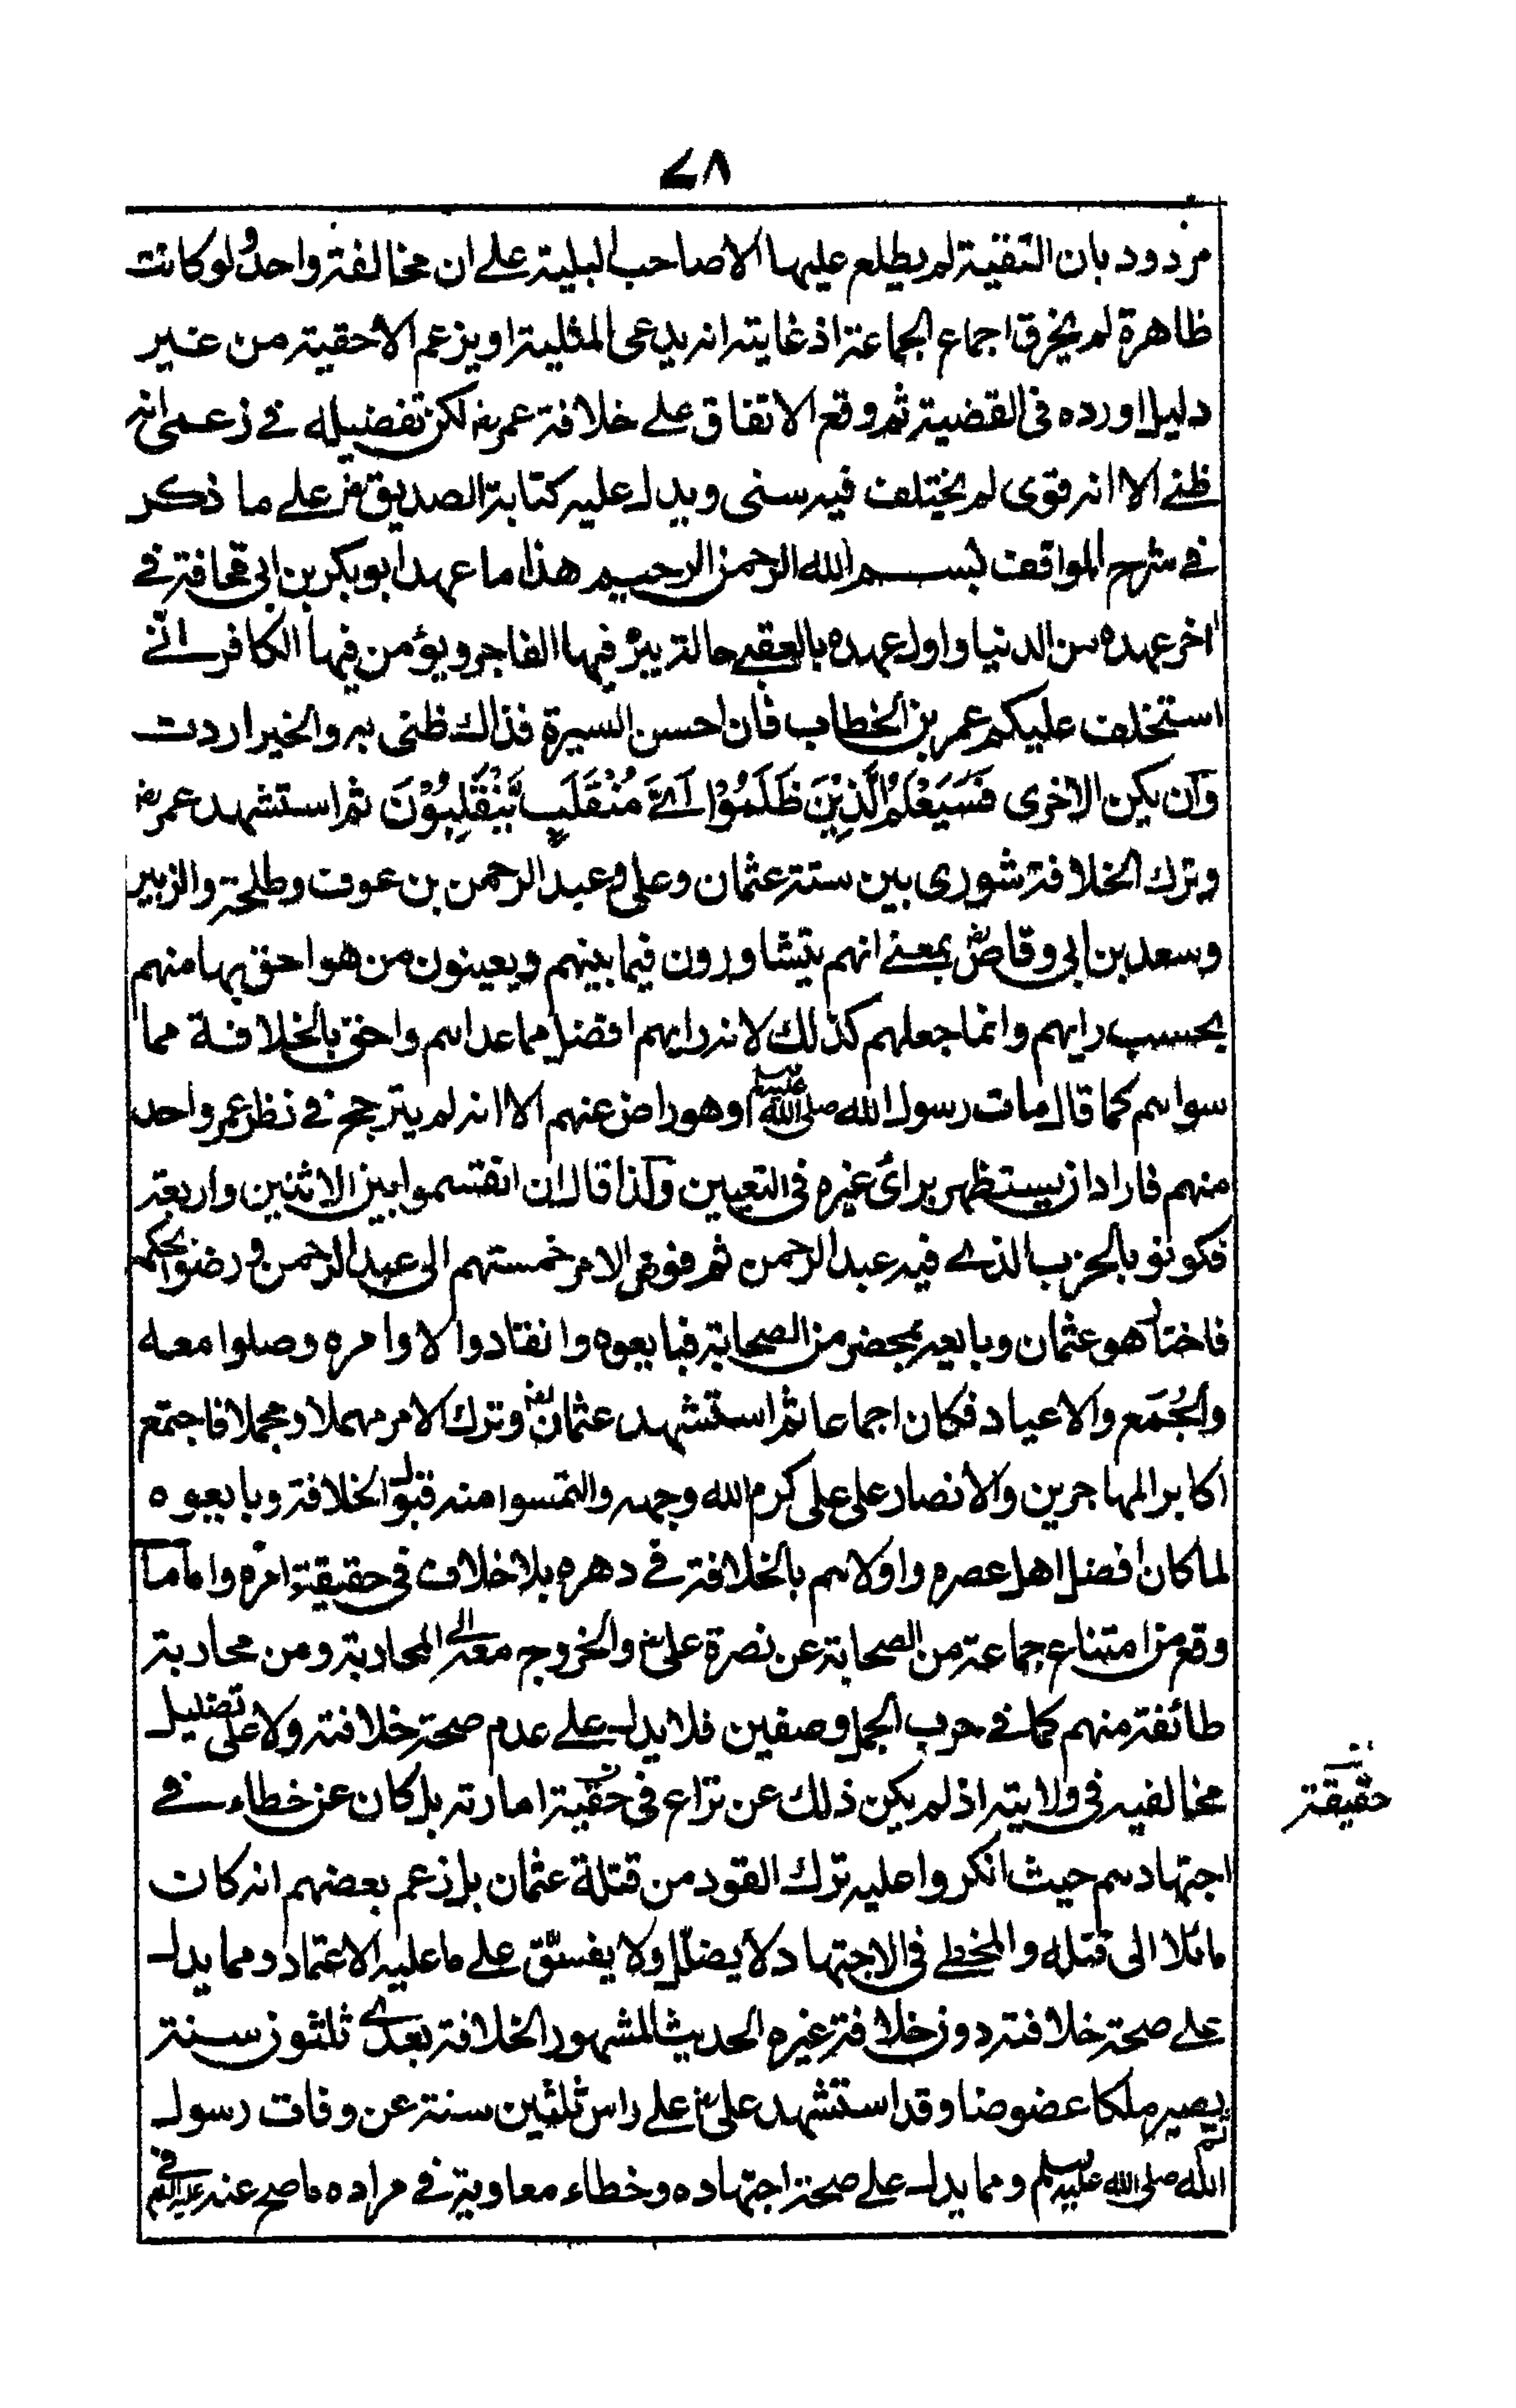 ٧٨
مردود بان التقية لم يطلع عليها الا صاحب البلية على ان مخالفة واحد لو كانت
ظاهرة لم يخرق اجماع الجماعة اذ غايته انه يدعى المثلية او يزعم الاحقية من غير
دليل اورده فى القضية ثم وقع الاتفاق على خلافة عمرؓ لكن تفضيله فى زعمى انه
ظنى الا انه قوى لم يختلف فيه سنى ويدل عليه كتابة الصديقؓ على ما ذكر
فى شرح المواقف بسم الله الرحمن الرحيم هذا ما عهد ابو بكر بن ابى قحافة فى
اخر عهده من الدنيا واول عهده بالعقبى حالة يبر فيها الفاجر ويؤمن فيها الكافر انى
استخلف عليكم عمر بن الخطاب فان احسن السيرة فذالك ظنى به والخير اردت
وان يكن الاخرى فَسَيَعْلَمُ الَّذِيْنَ ظَلَمُوْا اَىَّ مُنْقَلَبٍ يَّنْقَلِبُوْنَ ثم استشهد عمرؓ
وترك الخلافة شورى بين ستة عثمان وعلى وعبد الرحمن بن عوف وطلحة والزبير
وسعد بن ابى وقاصؓ بمعنى انهم يتشاورون فيما بينهم ويعينون من هو احق بها منهم
بحسب رايهم وانما جعلهم كذلك لانه رايهم افضل مما عداهم واحق بالخلافة مما
سواهم كما قال مات رسول الله صلى الله عليه وسلم وهو راض عنهم الا انه لم يترجح فى نظر عمر واحد
منهم فاراد ان يستظهر براى غيره فى التعيين ولذا قال ان انقسموا بين الاثنين واربعة
فكونو بالحزب الذى فيه عبد الرحمن ثم فوض الامر خمستهم الى عبد الرحمن ورضوا بحكمه
فاختار هو عثمان وبايعه بمحضر من الصحابة فبايعوه وانقادوا لاوامره وصلوا معه
والجُمَع والاعياد فكان اجماعا ثم استشهد عثمانؓ وترك الامر مهملا ومجملا فاجتمع
اكابر المهاجرين والانصار على على كرم الله وجهه والتمسوا منه قبول الخلافة وبايعوه
لما كان افضل اهل عصره واولاهم بالخلافة فى دهره بلا خلاف فى حقيقة امره واما ما
وقع من امتناع جماعة من الصحابة عن نصرة علىؓ والخروج معه الى المحاربة ومن محاربة
طائفة منهم كما فى حرب الجمل وصفين فلا يدل على عدم صحة خلافته ولا على تضليل
مخالفيه فى ولايته اذ لم يكن ذلك عن نزاع فى حقية امارته بل كان عن خطاء فى
حقيقة
اجتهادهم حيث انكروا عليه ترك القود من قتلة عثمان بل زعم بعضهم انه كان
مائلا الى قتله والمخطى فى الاجتهاد لا يضلّل ولا يفسّق على ما عليه الاعتماد ومما يدل
على صحة خلافته دون خلافة غيره الحديث المشهور الخلافة بعدى ثلثون سنة
ثم يصير ملكا عضوضا وقد استشهد علىؓ على راس ثلثين سنة عن وفات رسول
الله صلى الله عليه وسلم ومما يدل على صحة اجتهاده وخطاء معاوية فى مراده ما صح عنه عليه السلام فى